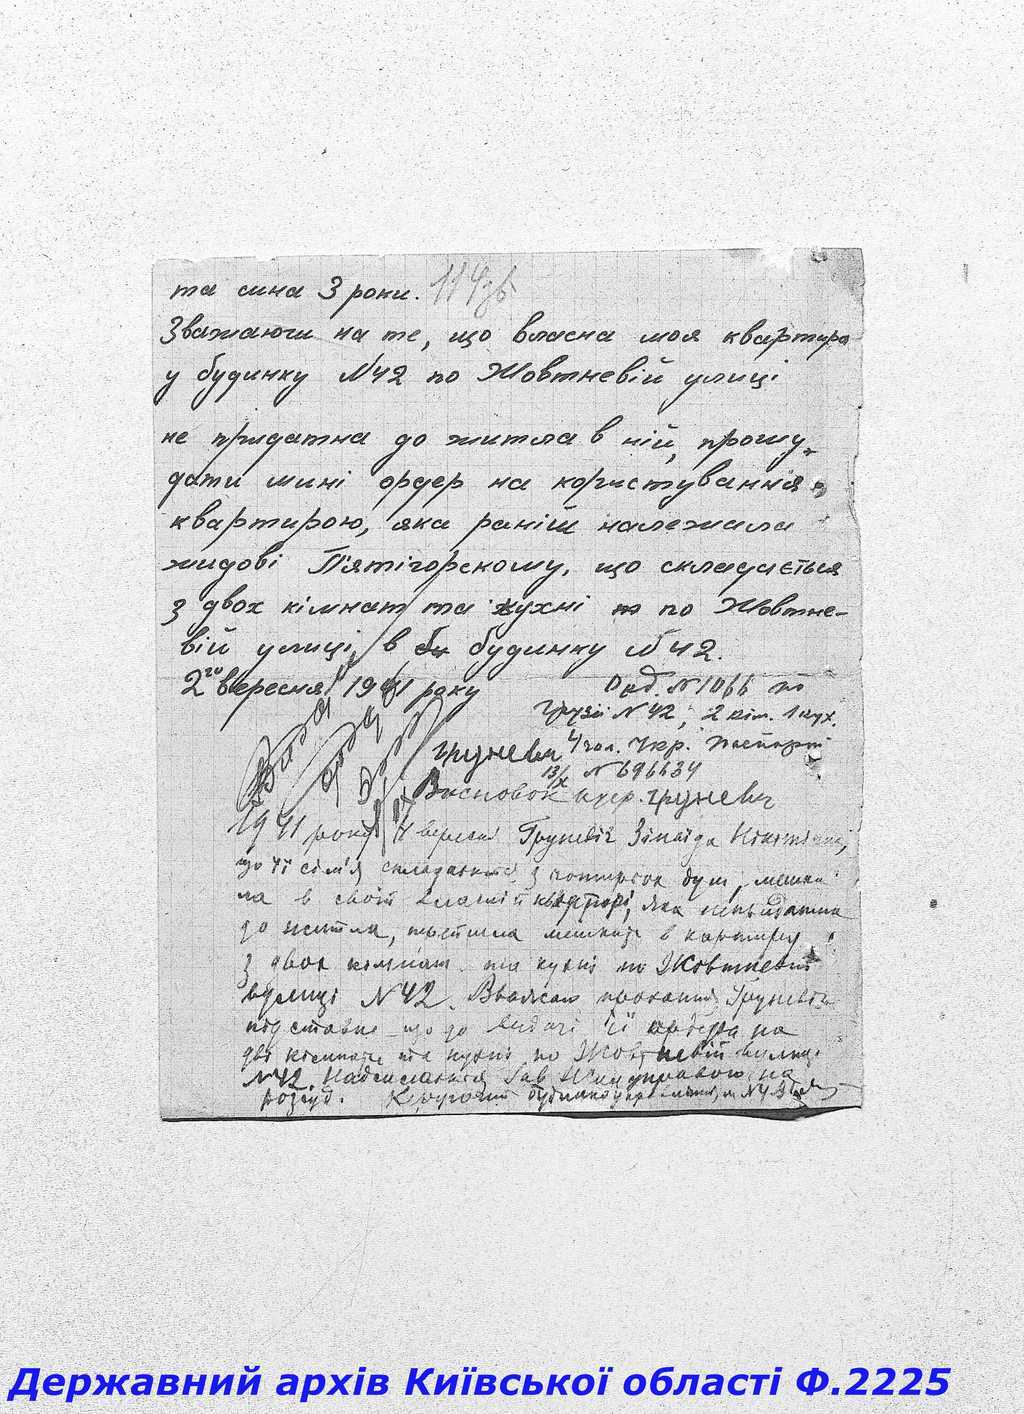 та сина 3 роки. 114зв
Зважаючи на те, що власна моя квартира
у будинку №42 по Жовтневій улиці
не придатна до житла в ній, прошу
дати мині ордер на користування
квартирою, яка раній належала
жидові П'ятігорскому, що складається
з двох кімнат та кухні по Жовтне-
вій улиці, в будинку №42.
2го вересня 1941 року
Орд. №1066 по
№42, 2 кім. 1 кух.
Груневич 4 чол. Укр. Паспорт
13/IX № 696634
Висновок Груневич
1941 року 4 вересня Груневіч Зінаїда
що її сім'я складається з чотирьох душ, мешка
ла в своїй власній квартирі, яка непридатна
до житла, мешкає в квартирі
з двох кімнат та кухні по Жовтневій
вулиці №42. Вважаю прохання Груневіч
підставне що до видачі її ордера на
дві кімнати та кухні по Жовтневій вулиці
№42. Надсилається на
розгляд. Керуючий
Державний архів Київської області Ф.2225